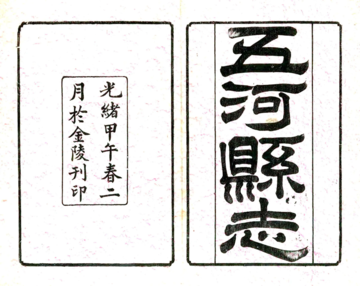 五河縣志
光緒甲午春二
月於金陵刊印